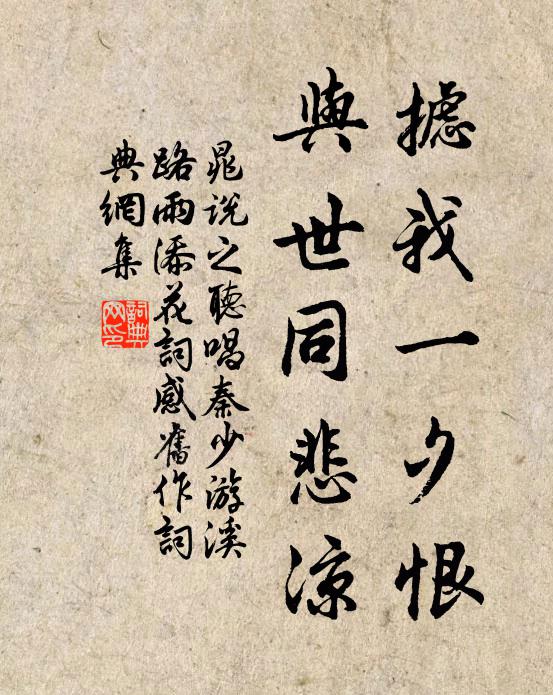 攄我一夕恨
與世同悲凉
晁說之聽唱秦少游溪
路雨添花詞感舊作詞
典網集
詞典
网印